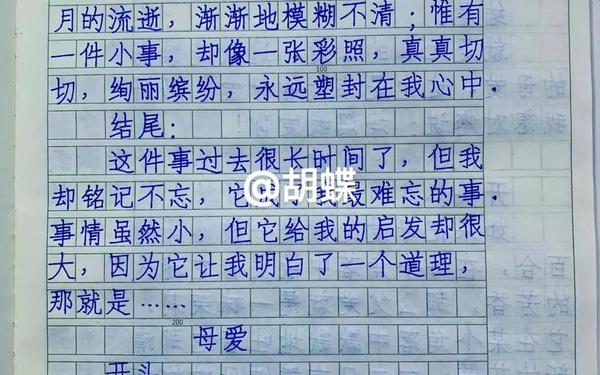 月的流逝，渐渐地模糊不清；惟有
一件小事，却像一张彩照，真真切
切，绚丽缤纷，永远塑封在我心中．
100
结尾：
这件事过去很长时间了，但我
却铭记不忘，它 最难忘的事．
@胡蝶
事情虽然小，但它给我的启发却很
大，因为它让我明白了一个道理，
那就是……
200
母爱
开头
百合
的芳香